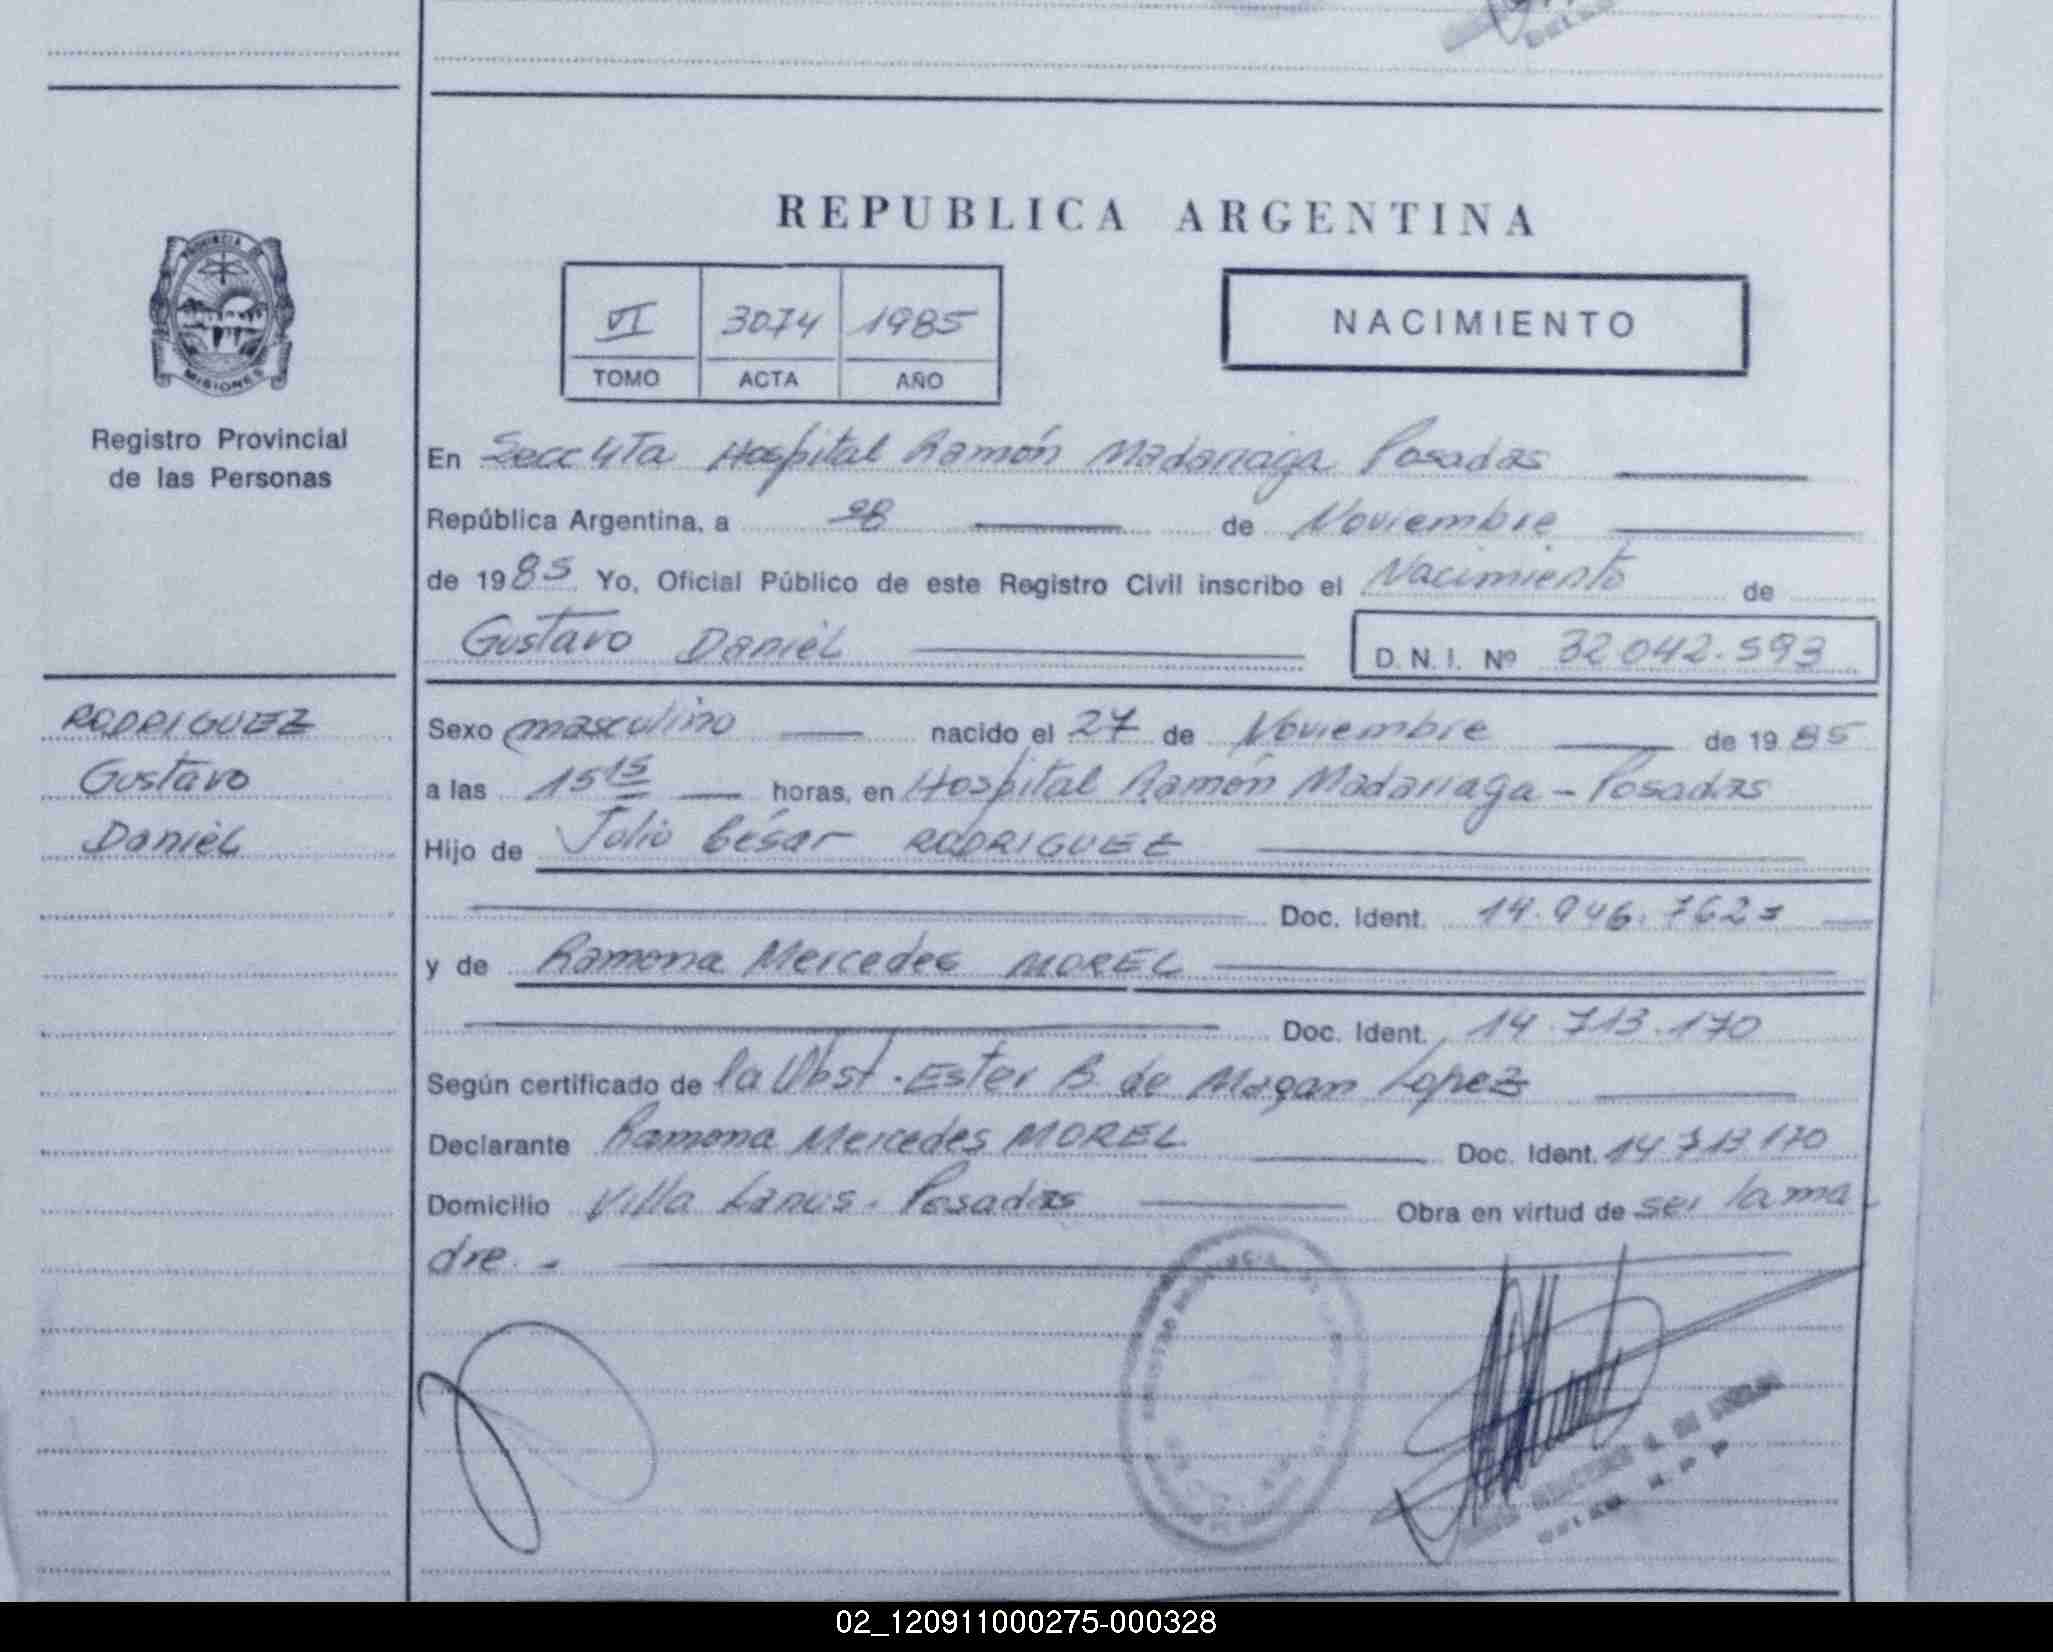 REPUBLICA ARGENTINA
PROVINCIA DE
MISIONES
Registro Provincial
de las Personas
VI 3074 1985
TOMO ACTA AÑO
NACIMIENTO
En Secc 4Ta Hospital Ramón Madariaga Posadas
República Argentina, a 28 de Noviembre
de 1985 Yo, Oficial Público de este Registro Civil inscribo el Nacimiento de
Gustavo Daniel D.N.I. Nº 32 042.593
RODRIGUEZ
Gustavo
Daniel
Sexo masculino nacido el 27 de Noviembre de 1985
a las 15 15 horas, en Hospital Ramón Madariaga - Posadas
Hijo de Julio César RODRIGUEZ
Doc. Ident. 14.946.762
y de Ramona Mercedes MOREL
Doc. Ident. 14.713.170
Según certificado de la Obst. Ester B. de Lopez
Declarante Ramona Mercedes MOREL Doc. Ident. 14 713 170
Domicilio Villa Lanus - Posadas Obra en virtud de ser la ma
dre. -
02_120911000275-000328